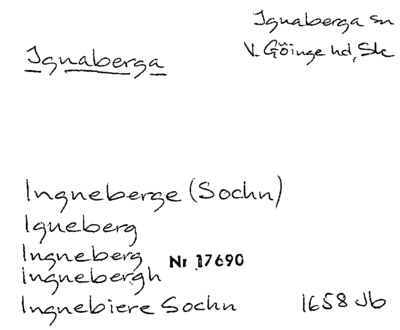 Ignaberga sn
V. Göinge hd, Skc
Ignaberga
Ingneberge (Sochn)
Igneberg
Ingneberg Nr 17690
Ingnebergh
Ingnebiere Sochn 1658 Jb